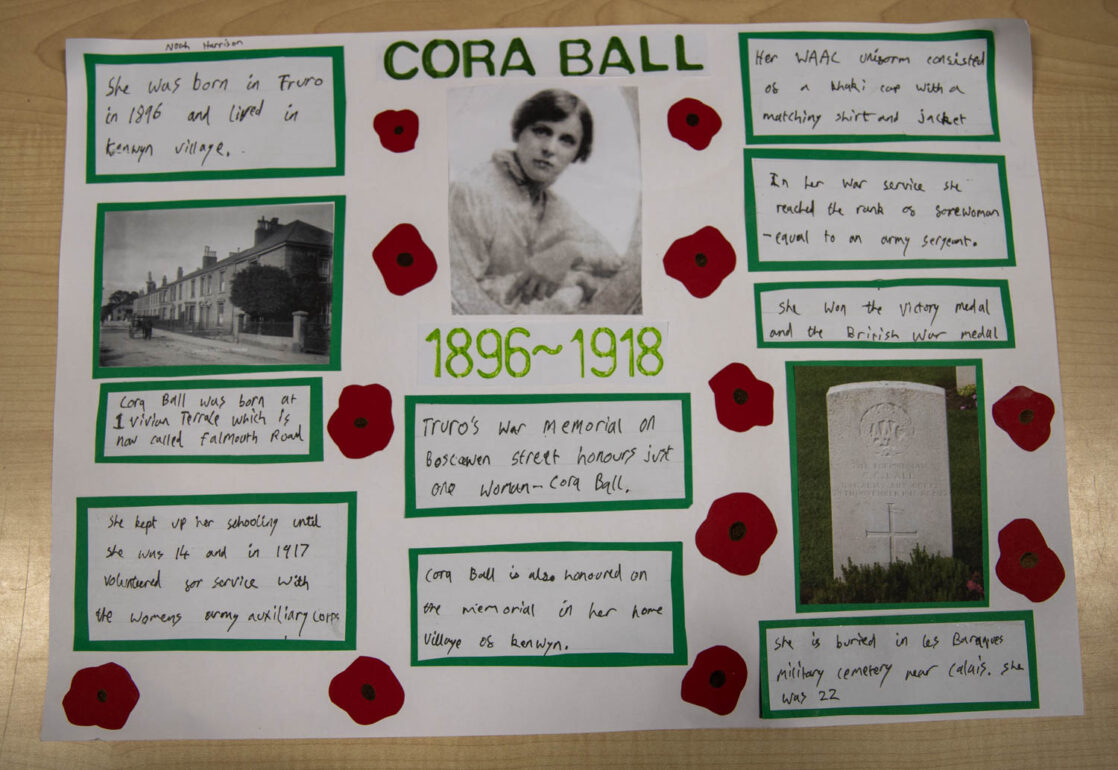 Noah Harrison
CORA BALL
She was born in Truro
in 1896 and lived in
Kenwyn village.
Cora Ball was born at
1 Vivian Terrace which is
now called Falmouth Road
She kept up her schooling until
she was 14 and in 1917
volunteered for service with
the womens army auxiliary corps
1896~1918
Truro's War Memorial on
Boscawen street honours just
one woman - Cora Ball.
Cora Ball is also honoured on
the memorial in her home
village of Kenwyn.
Her WAAC uniform consisted
of a khaki cap with a
matching shirt and jacket
In her war service she
reached the rank of forewoman
- equal to an army sergeant.
She won the Victory medal
and the British War medal
She is buried in Les Baraques
military cemetery near Calais. She
was 22